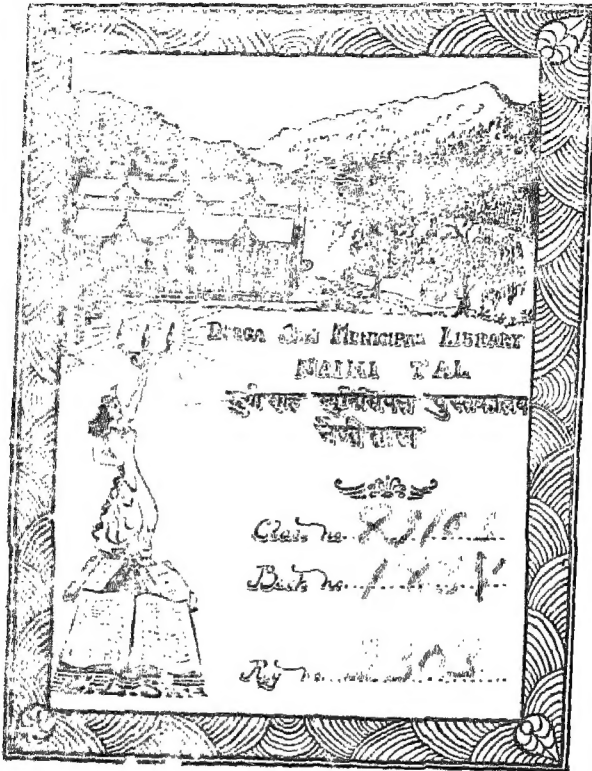 DURGA SAH MUNICIPAL LIBRARY
NAINI TAL
दुर्गा साह म्युनिसिपल पुस्तकालय
नैनीताल
Class no.
Book no.
Reg no.